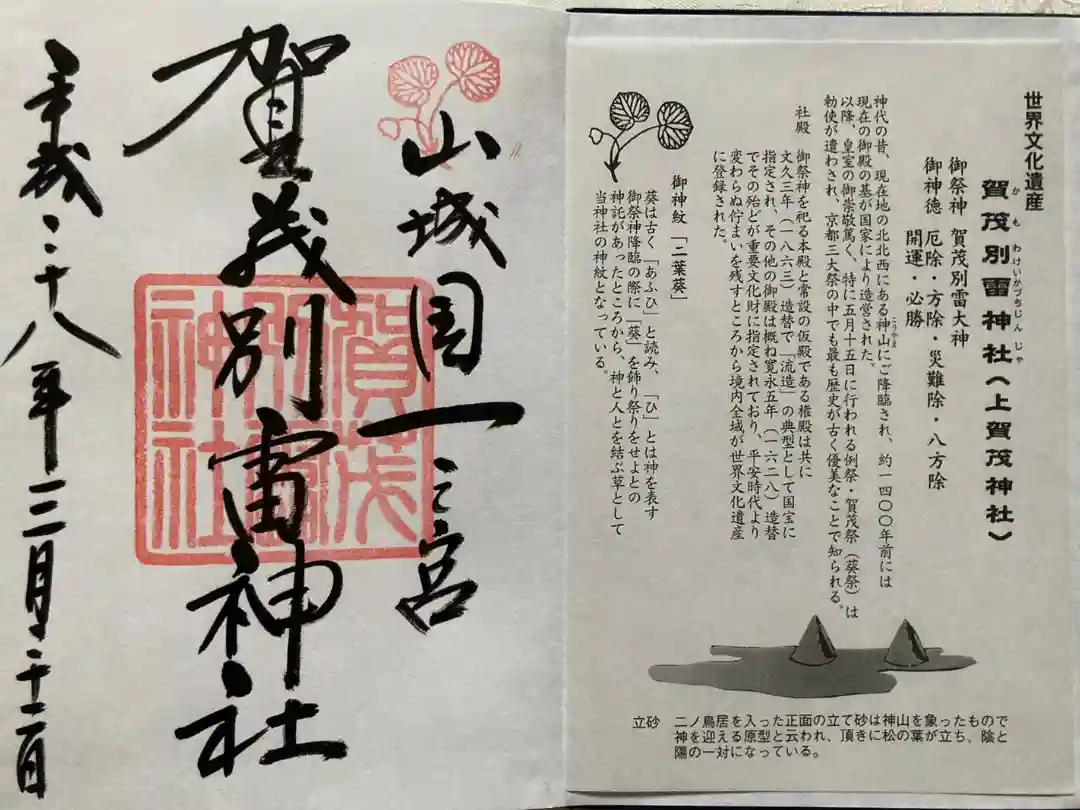 世界文化遺産
かもわけいかづちじんじゃ
賀茂別雷神社(上賀茂神社)
御祭神 賀茂別雷大神
御神徳 厄除・方除・災難除・八方除
開運・必勝
こうやま
神代の昔、現在地の北北西にある神山にご降臨され、約一四〇〇年前には
現在の御殿の基が国家により造営された。
以降、皇室の御崇敬篤く、特に五月十五日に行われる例祭・賀茂祭(葵祭)は
勅使が遣わされ、京都三大祭の中でも最も歴史が古く優美なことで知られる。
社殿 御祭神を祀る本殿と常設の仮殿である権殿は共に
文久三年(一八六三)造替で「流造」の典型として国宝に
指定され、その他の御殿は概ね寛永五年(一六二八)造替
でその殆どが重要文化財に指定されており、平安時代より
変わらぬ佇まいを残すところから境内全域が世界文化遺産
に登録された。
御神紋「二葉葵」
葵は古く「あふひ」と読み、「ひ」とは神を表す
御祭神降臨の際に「葵」を飾り祭りをせよとの
神託があったところから、神と人とを結ぶ草として
当神社の神紋となっている。
立砂 二ノ鳥居を入った正面の立て砂は神山を象ったもので
神を迎える原型と云われ、頂きに松の葉が立ち、陰と
陽の一対になっている。
山城国一之宮
賀茂別雷神社
賀茂
別雷
神社
平成二十八年三月二十一日